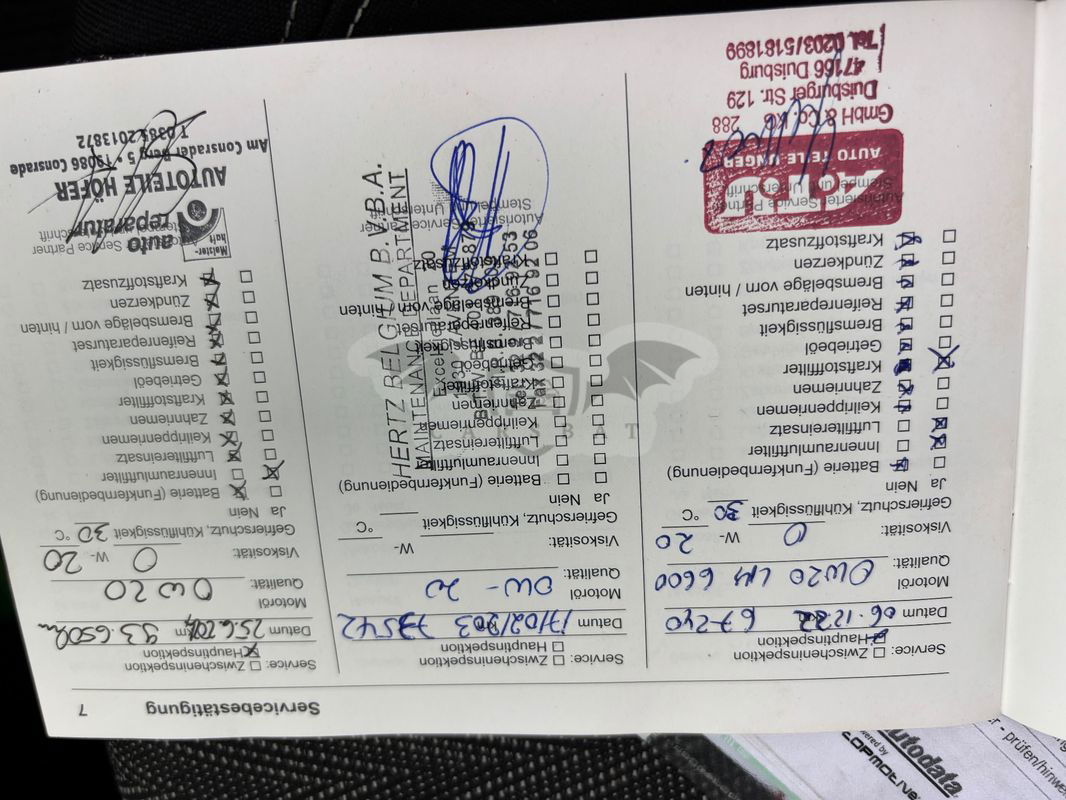 Servicebestätigung 7
Service: Zwischeninspektion
Hauptinspektion
Datum 06.12.22 km 67240
Motoröl
Qualität: 0W20 LM 6600
Viskosität: 0 W- 20
Gefrierschutz, Kühlflüssigkeit 30 °C
Ja Nein
Batterie (Funkfernbedienung)
Innenraumluftfilter
Luftfiltereinsatz
Keilrippenriemen
Zahnriemen
Kraftstofffilter
Getriebeöl
Bremsflüssigkeit
Reifenreparaturset
Bremsbeläge vorn / hinten
Zündkerzen
Kraftstoffzusatz
Autorisierte Service Partner
Stempel und Unterschrift
AUTO TEILE UNGER
GmbH & Co. KG 288
Duisburger Str. 129
47166 Duisburg
Tel. 0203/5181899
Service: Zwischeninspektion
Hauptinspektion
Datum 77542
Motoröl
Qualität: 0W-20
Viskosität: W-
Gefrierschutz, Kühlflüssigkeit °C
Ja Nein
Batterie (Funkfernbedienung)
Innenraumluftfilter
Luftfiltereinsatz
Keilrippenriemen
Zahnriemen
Kraftstofffilter
Getriebeöl
Bremsflüssigkeit
Reifenreparaturset
Bremsbeläge vorn / hinten
Zündkerzen
Kraftstoffzusatz
Autorisierte Service Partner
Stempel
HERTZ BELGIUM B.V.B.A.
MAINTENANCE DEPARTMENT
Service: Zwischeninspektion
Hauptinspektion
Datum km 93650km
Motoröl
Qualität: 0W20
Viskosität: 0 W- 20
Gefrierschutz, Kühlflüssigkeit 30 °C
Ja Nein
Batterie (Funkfernbedienung)
Innenraumluftfilter
Luftfiltereinsatz
Keilrippenriemen
Zahnriemen
Kraftstofffilter
Getriebeöl
Bremsflüssigkeit
Reifenreparaturset
Bremsbeläge vorn / hinten
Zündkerzen
Kraftstoffzusatz
Service Partner
Meister-
haft
auto
reparatur
AUTOTEILE HÖFER
Am Consrader Berg 5 • 19086 Consrade
T 0385 2013872
CARSBAT
Autodata
powered by
TOPMOTIVE